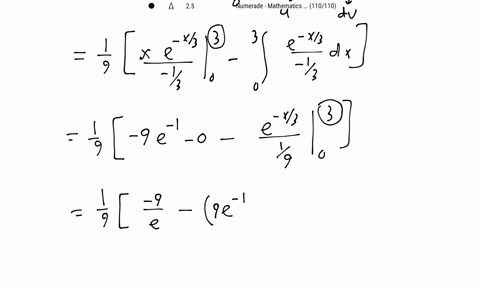 ● Δ 2.5 Numerade - Mathematics ... (110/110)
u dv
= 1/9 [ x e^{-x/3} / -1/3 |_0^3 - ∫_0^3 e^{-x/3} / -1/3 dx ]
= 1/9 [ -9e^{-1} - 0 - e^{-x/3} / 1/9 |_0^3 ]
= 1/9 [ -9/e - (9e^{-1}